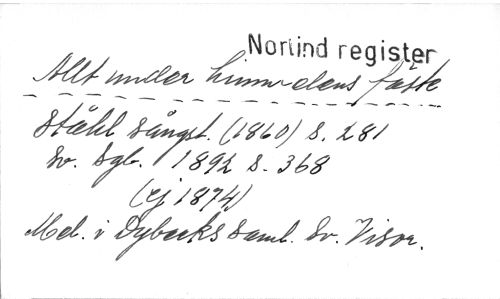 Norlind register
Allt under himmelens fäste
Ståhl Sångst. (1860) S. 281
Sv. Sgb. 1892 S. 368
(ej 1874)
Mel. i Dybecks Saml. Sv. Visor.